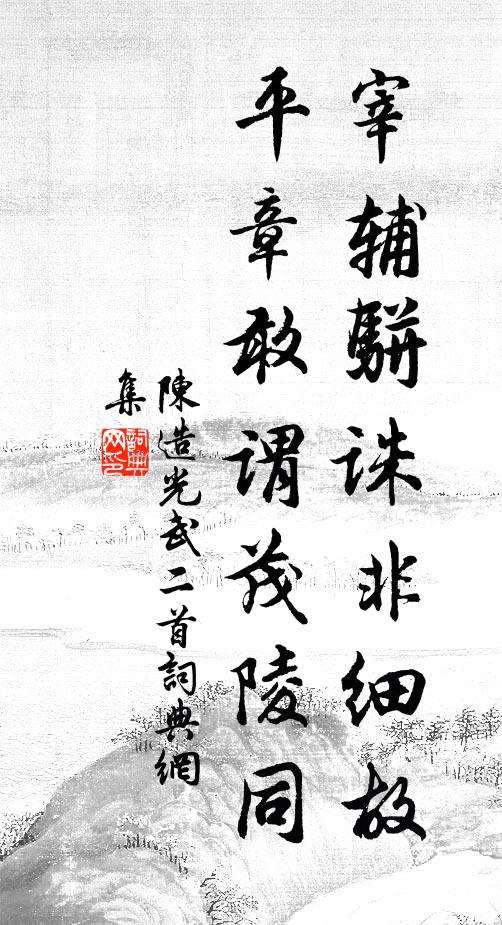 宰辅駢诛非细故
平章敢谓茂陵同
陳造光武二首詞典網
集
詞典网印